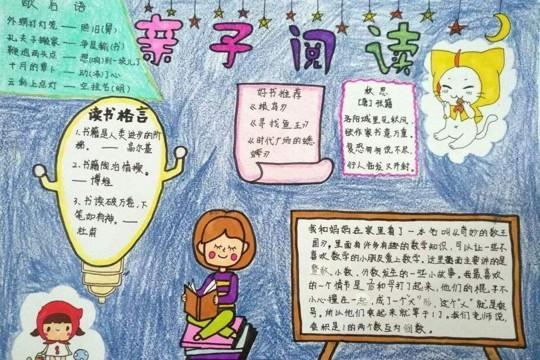 亲子阅读
歇后语
外甥打灯笼 — 照旧(舅)
孔夫子搬家 — 净是输(书)
鞭炮两头点 — 想(响)到一块儿了
十月的
云彩上点灯 — 空挂节(明)
读书格言
1.书籍是人类进步的阶
梯。 —— 高尔基
2.书籍陶冶情操。
—— 博维
3.书读破万卷，下
笔如有神。 ——
杜甫
好书推荐
《根鸟》
《寻找鱼王》
《时代广场的蟋
蟀》
秋思
[唐]张籍
洛阳城里见秋风，
欲作家书意万重。
复恐匆匆说不尽，
行人临发又开封。
我和妈妈在家里看了一本书叫《奇妙的数王
国》，里面有许多有趣的数学知识，可以让一些不
喜欢数学的小朋友爱上数学。这里面主要讲的是
整数、小数、分数发生的一些小故事。我最喜欢
的一个情节是 打起来，他们的棍子不
小心撞在一起，成了个"乂"形，这个"乂"就是乘
号。所以他们乘起来就等于1。我们老师说，
乘积是1的两个数互为倒数。